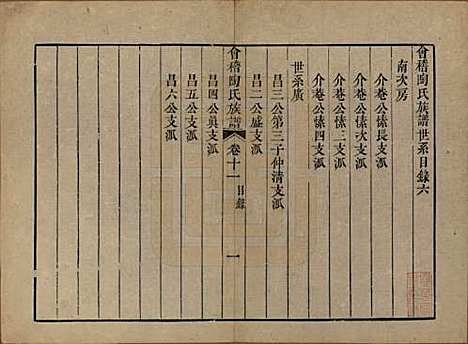 會稽陶氏族譜世系目錄六
南次房
介菴公傣長支派
介菴公傣次支派
介菴公傣三支派
介菴公傣四支派
世系廣
昌二公第三子仲清支派
昌三公盛支派
會稽陶氏族譜 卷十一 目錄 一
昌四公眞支派
昌五公支派
昌六公支派